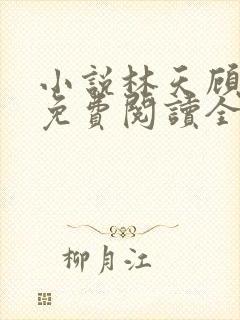 小説林天顧
免費閱讀全
柳月江